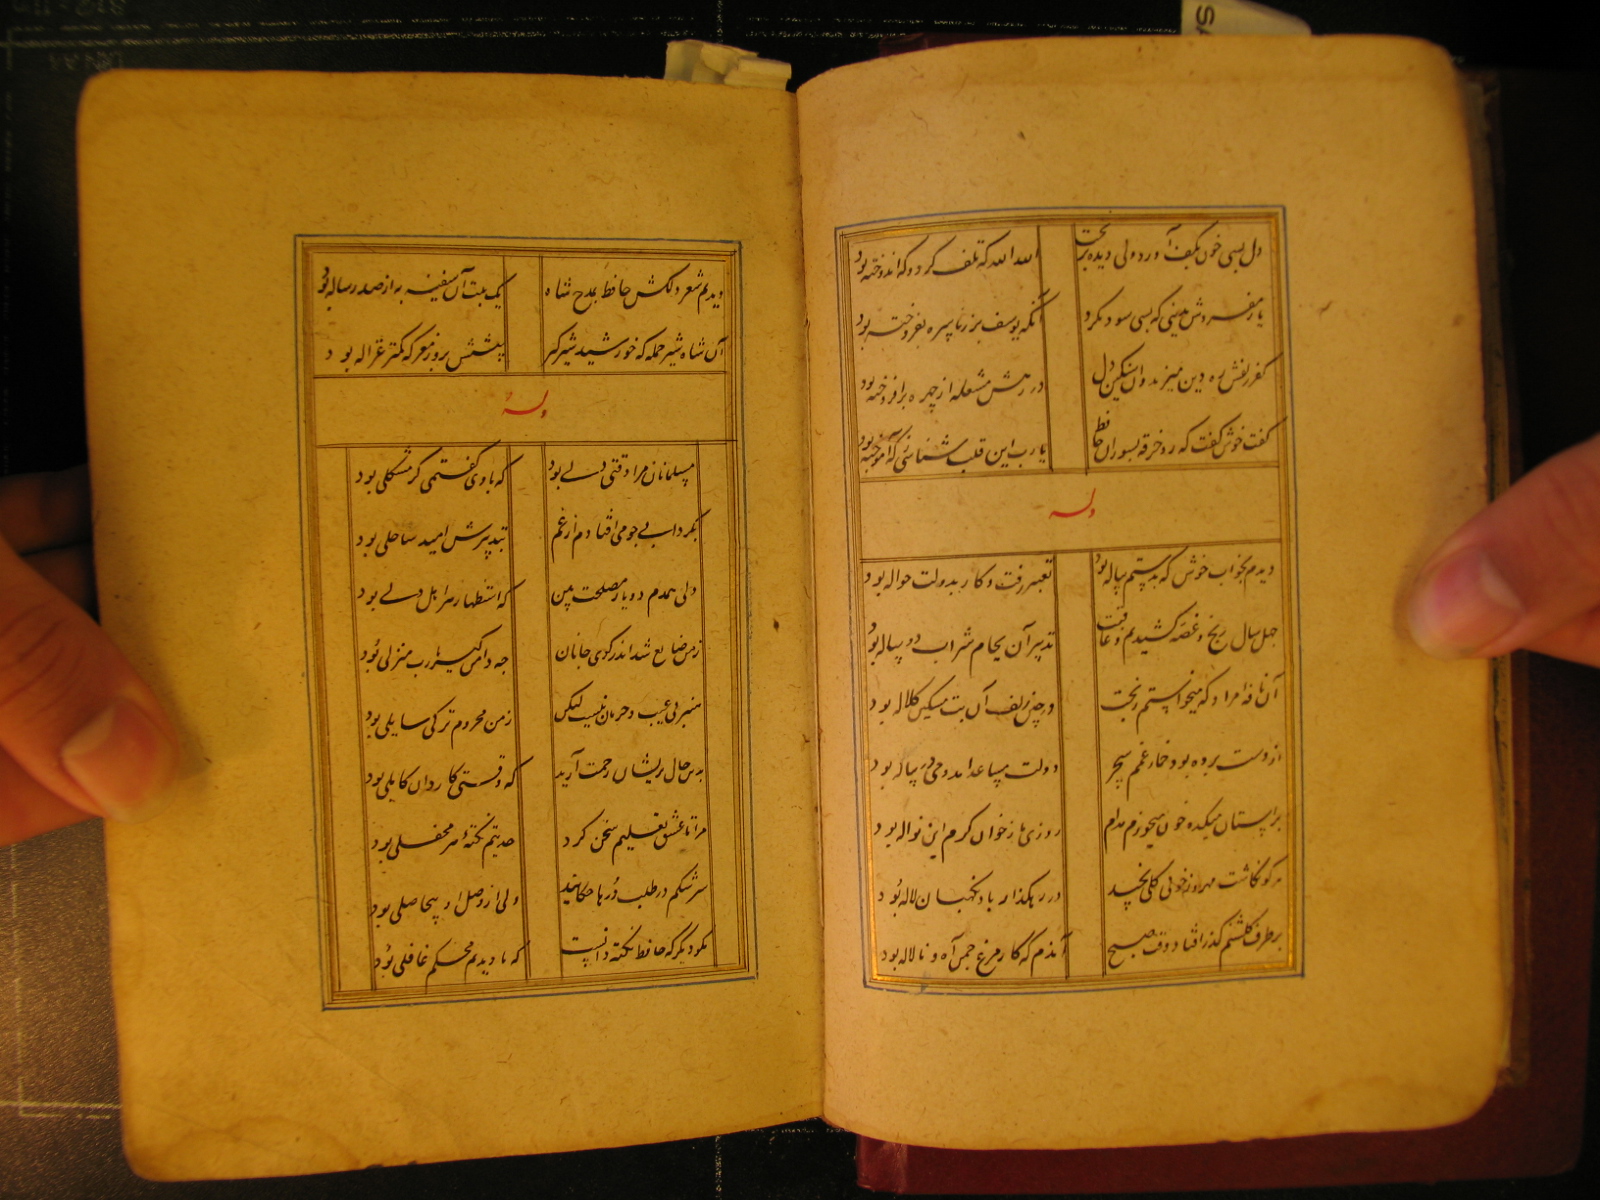 دل بسی خون بکف آورد ولی دیده بریخت
الله الله که تلف کرد و که اندوخته بود
یار مفروش بدنیی که بسی سود نکرد
آنکه یوسف بزر ناسره بفروخته بود
کفر زلفش ره دین میزد و آن سنگین دل
در رهش مشعله از چهره برافروخته بود
گفت خوش گفت که رو خرقه بسوزان حافظ
یارب این قلب شناسی ز که آموخته بود
وله
دیدم بخواب خوش که بدستم پیاله بود
تعبیر رفت و کار بدولت حواله بود
چهل سال رنج و غصه کشیدیم و عاقبت
تدبیر آن بجام شراب دو ساله بود
آن نافه مراد که میخواستم ز بخت
در چین زلف آن بت مشکین کلاله بود
از دست برده بود خمار غمم سحر
دولت مساعد آمد و می در پیاله بود
بر آستان میکده خون میخورم مدام
روزی ما ز خوان کرم این نواله بود
هر کو نکاشت مهر و ز خوبی گلی نچید
در رهگذار باد نگهبان لاله بود
بر طرف گلشنم گذر افتاد وقت صبح
آندم که کار مرغ چمن آه و ناله بود
دیدیم شعر دلکش حافظ بمدح شاه
یک بیت آن سفینه به از صد رساله بود
آن شاه شیر حمله که خورشید شیرگیر
پیشش بروز معرکه کمتر غزاله بود
وله
مسلمانان مرا وقتی دلی بود
که با وی گفتمی گر مشکلی بود
بگردابی چو می افتادم از غم
بتدبیرش امید ساحلی بود
دلی همدم و یار مصلحت بین
که استظهار هر اهل دلی بود
ز من ضایع شد اندر کوی جانان
چه دامن گیر یارب منزلی بود
هنر بی عیب و حرمان نیست لیکن
ز من محروم تر کی سایلی بود
بدین حال پریشان رحمت آرید
که وقتی کاردان کاملی بود
مرا تا عشق تعلیم سخن کرد
حدیثم نکته هر محفلی بود
سرشکم در طلب درها چکانید
ولی از وصل او بیحاصلی بود
مگو دیگر که حافظ نکته دانست
که ما دیدیم محکم غافلی بود